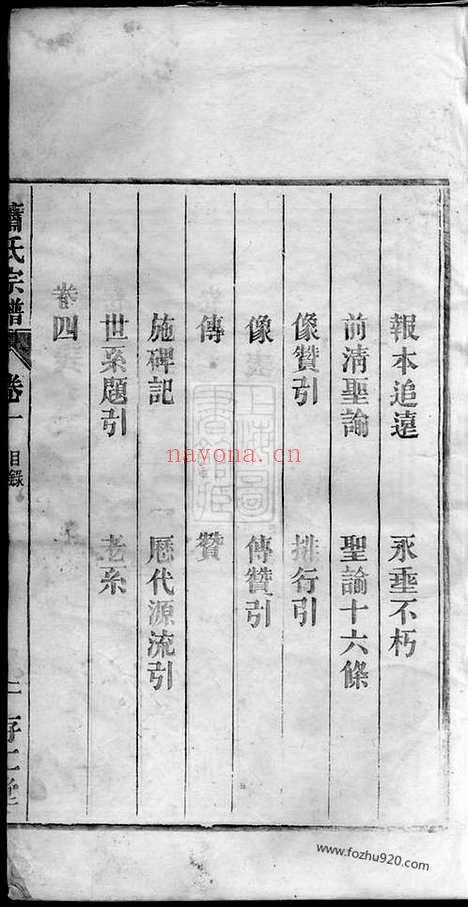 報本追遠　永垂不朽
前清聖諭　聖諭十六條
像贊引　排行引
像　傳贊引
傳　贊
施碑記　歷代源流引
世系題引　老系
卷四
氏宗譜
卷一
目錄
nayona.cn
www.fozhu920.com